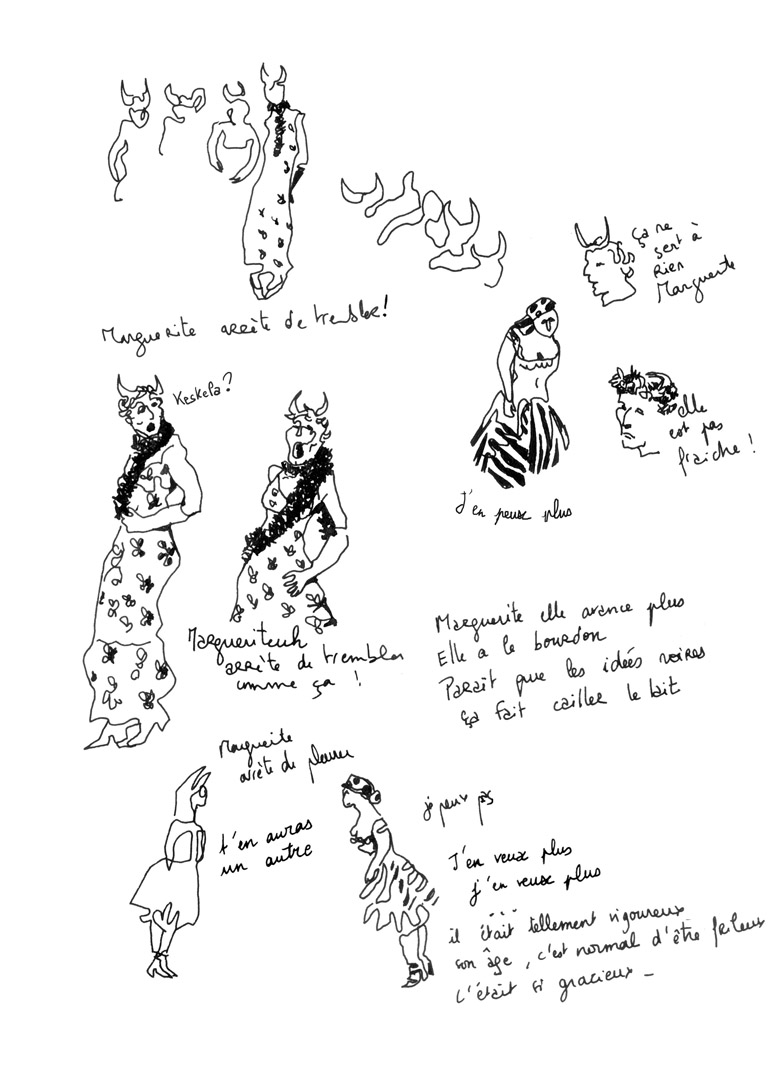 Marguerite arrête de trembler!
ça ne
sert à
Rien
Marguerite
Keskela?
elle
est pas
fraiche!
J'en peux plus
Margueriteuh
arrête de trembler
comme ça !
Marguerite elle avance plus
Elle a le bourdon
Parait que les idées noires
ça fait cailler le lait
Marguerite
arrête de pleurer
je peux pas
t'en auras
un autre
J'en veux plus
j'en veux plus
...
il était tellement vigoureux
son âge, c'est normal d'être frileux
c'était si gracieux _